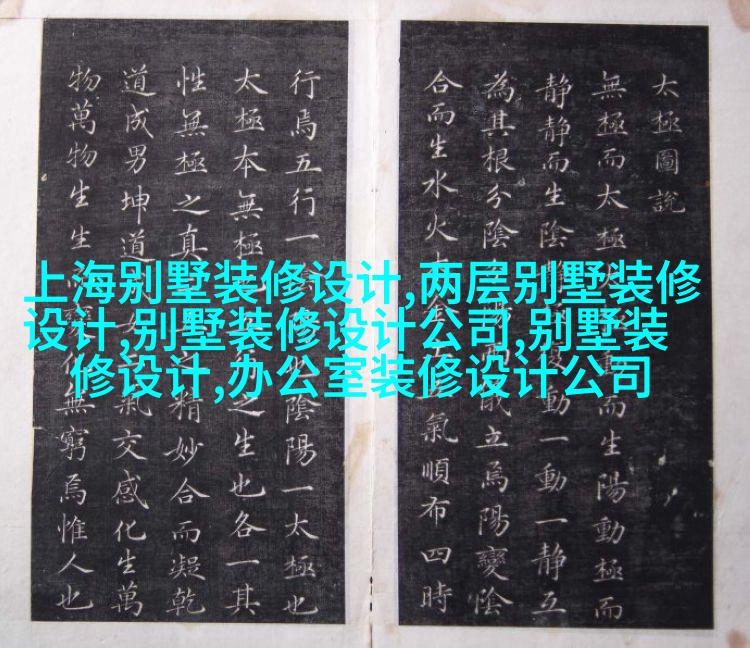 太極圖說
無極而太極 動而生陽動極而
靜靜而生陰 動一動一靜互
為其根分陰 立焉陽變陰
合而生水火 氣順布四時
行焉五行一 陰陽一太極也
太極本無極 之生也各一其
性無極之真 精妙合而凝乾
道成男坤道 氣交感化生萬
物萬物生生 無窮焉惟人也
上海别墅装修设计,两层别墅装修
设计,别墅装修设计公司,别墅装
修设计,办公室装修设计公司